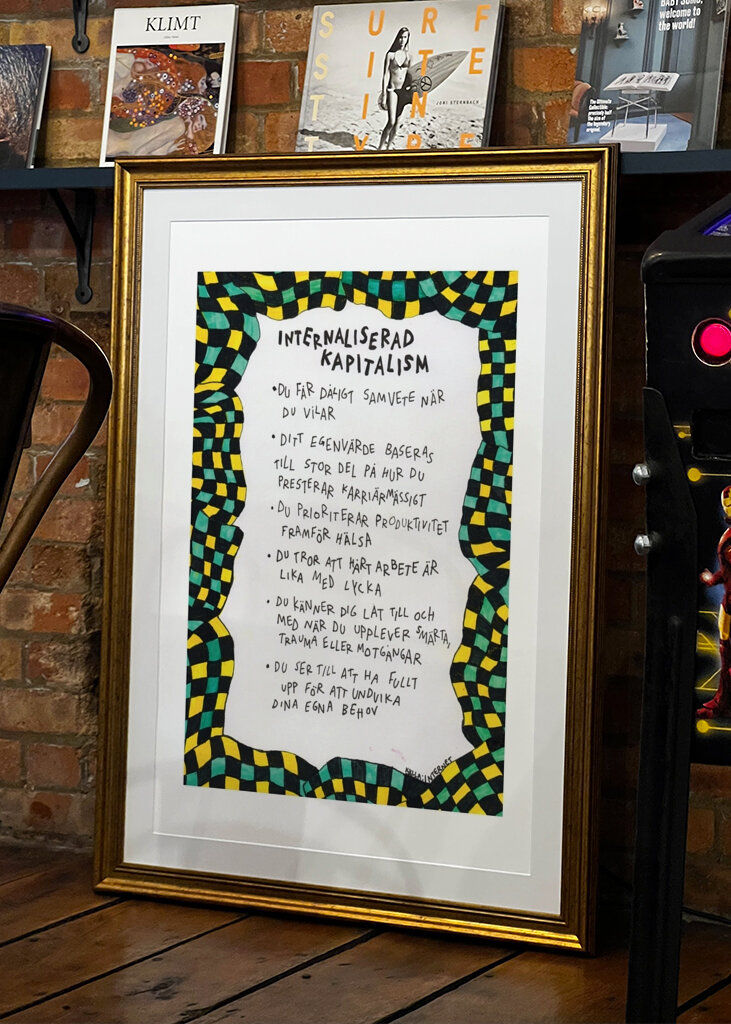 KLIMT
SURF
SITE
TIN
TYPE
JONI STERNBACH
BABY SUMO,
welcome to
the world!
The Ultimate
Collectible:
precisely half
the size of
the legendary
original.
INTERNALISERAD
KAPITALISM
•DU FÅR DÅLIGT SAMVETE NÄR
DU VILAR
•DITT EGENVÄRDE BASERAS
TILL STOR DEL PÅ HUR DU
PRESTERAR KARRIÄRMÄSSIGT
•DU PRIORITERAR PRODUKTIVITET
FRAMFÖR HÄLSA
•DU TROR ATT HÅRT ARBETE ÄR
LIKA MED LYCKA
•DU KÄNNER DIG LAT TILL OCH
MED NÄR DU UPPLEVER SMÄRTA,
TRAUMA ELLER MOTGÅNGAR
•DU SER TILL ATT HA FULLT
UPP FÖR ATT UNDVIKA
DINA EGNA BEHOV